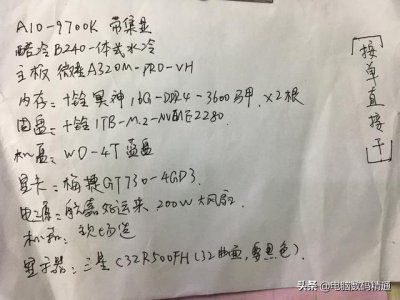 A10-9700K 带集显
酷冷B240一体式水冷
主板 微星A320M-PRO-VH
内存:十铨冥神16G-DDR4-3600马甲.×2根
固盘:十铨1TB-M.2-NVME2280.
机盘:WD-4T 蓝盘
显卡:梅捷GT730-4GD3.
电源:航嘉好运来.200W大风扇.
机箱:
显示器:三星C32R500FH(32曲面,雾黑色).
接单直接干
头条 @电脑数码精通